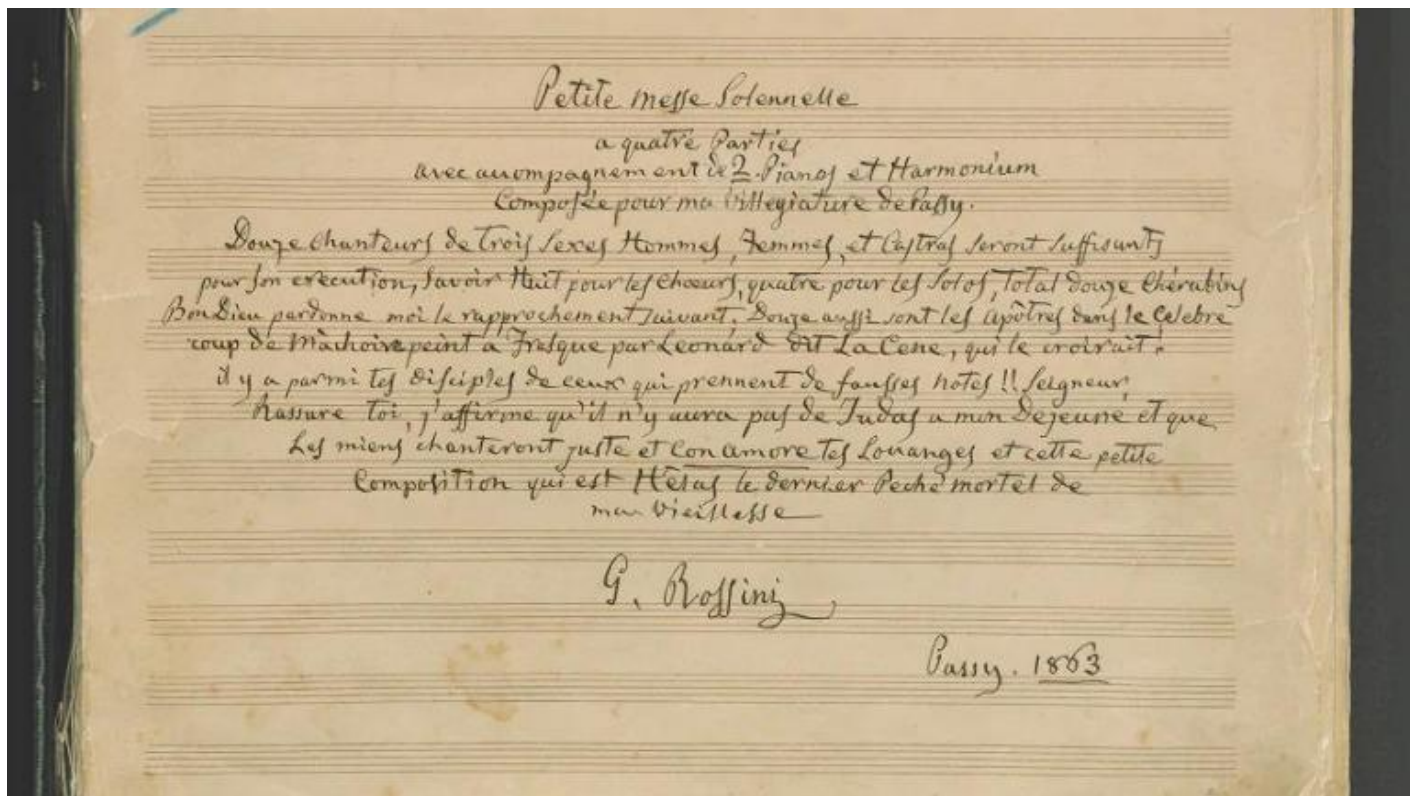 Petite messe Solennelle
a quatre Parties
avec accompagnement de 2. Pianos et Harmonium
Composée pour ma villegiature de Passy.
Douze chanteurs de trois Sexes Hommes, Femmes, et Castras seront suffisants
pour son execution, savoir Huit pour les Choeurs, quatre pour les Solos, total douze Chérubins
Bon Dieu pardonne moi le rapprochement suivant. Douze aussi sont les Apôtres dans le Celebre
coup de Mâchoire peint a Fresque par Leonard dit La Cene, qui le croirait.
il y a parmi tes disciples de ceux qui prennent de fausses notes!! Seigneur,
Rassure toi, j'affirme qu'il n'y aura pas de Judas a mon Dejeuné et que
Les miens chanteront juste et Con amore tes Louanges et cette petite
Composition qui est Hélas le dernier Peché mortel de
ma vieillesse
G. Rossini
Passy. 1863